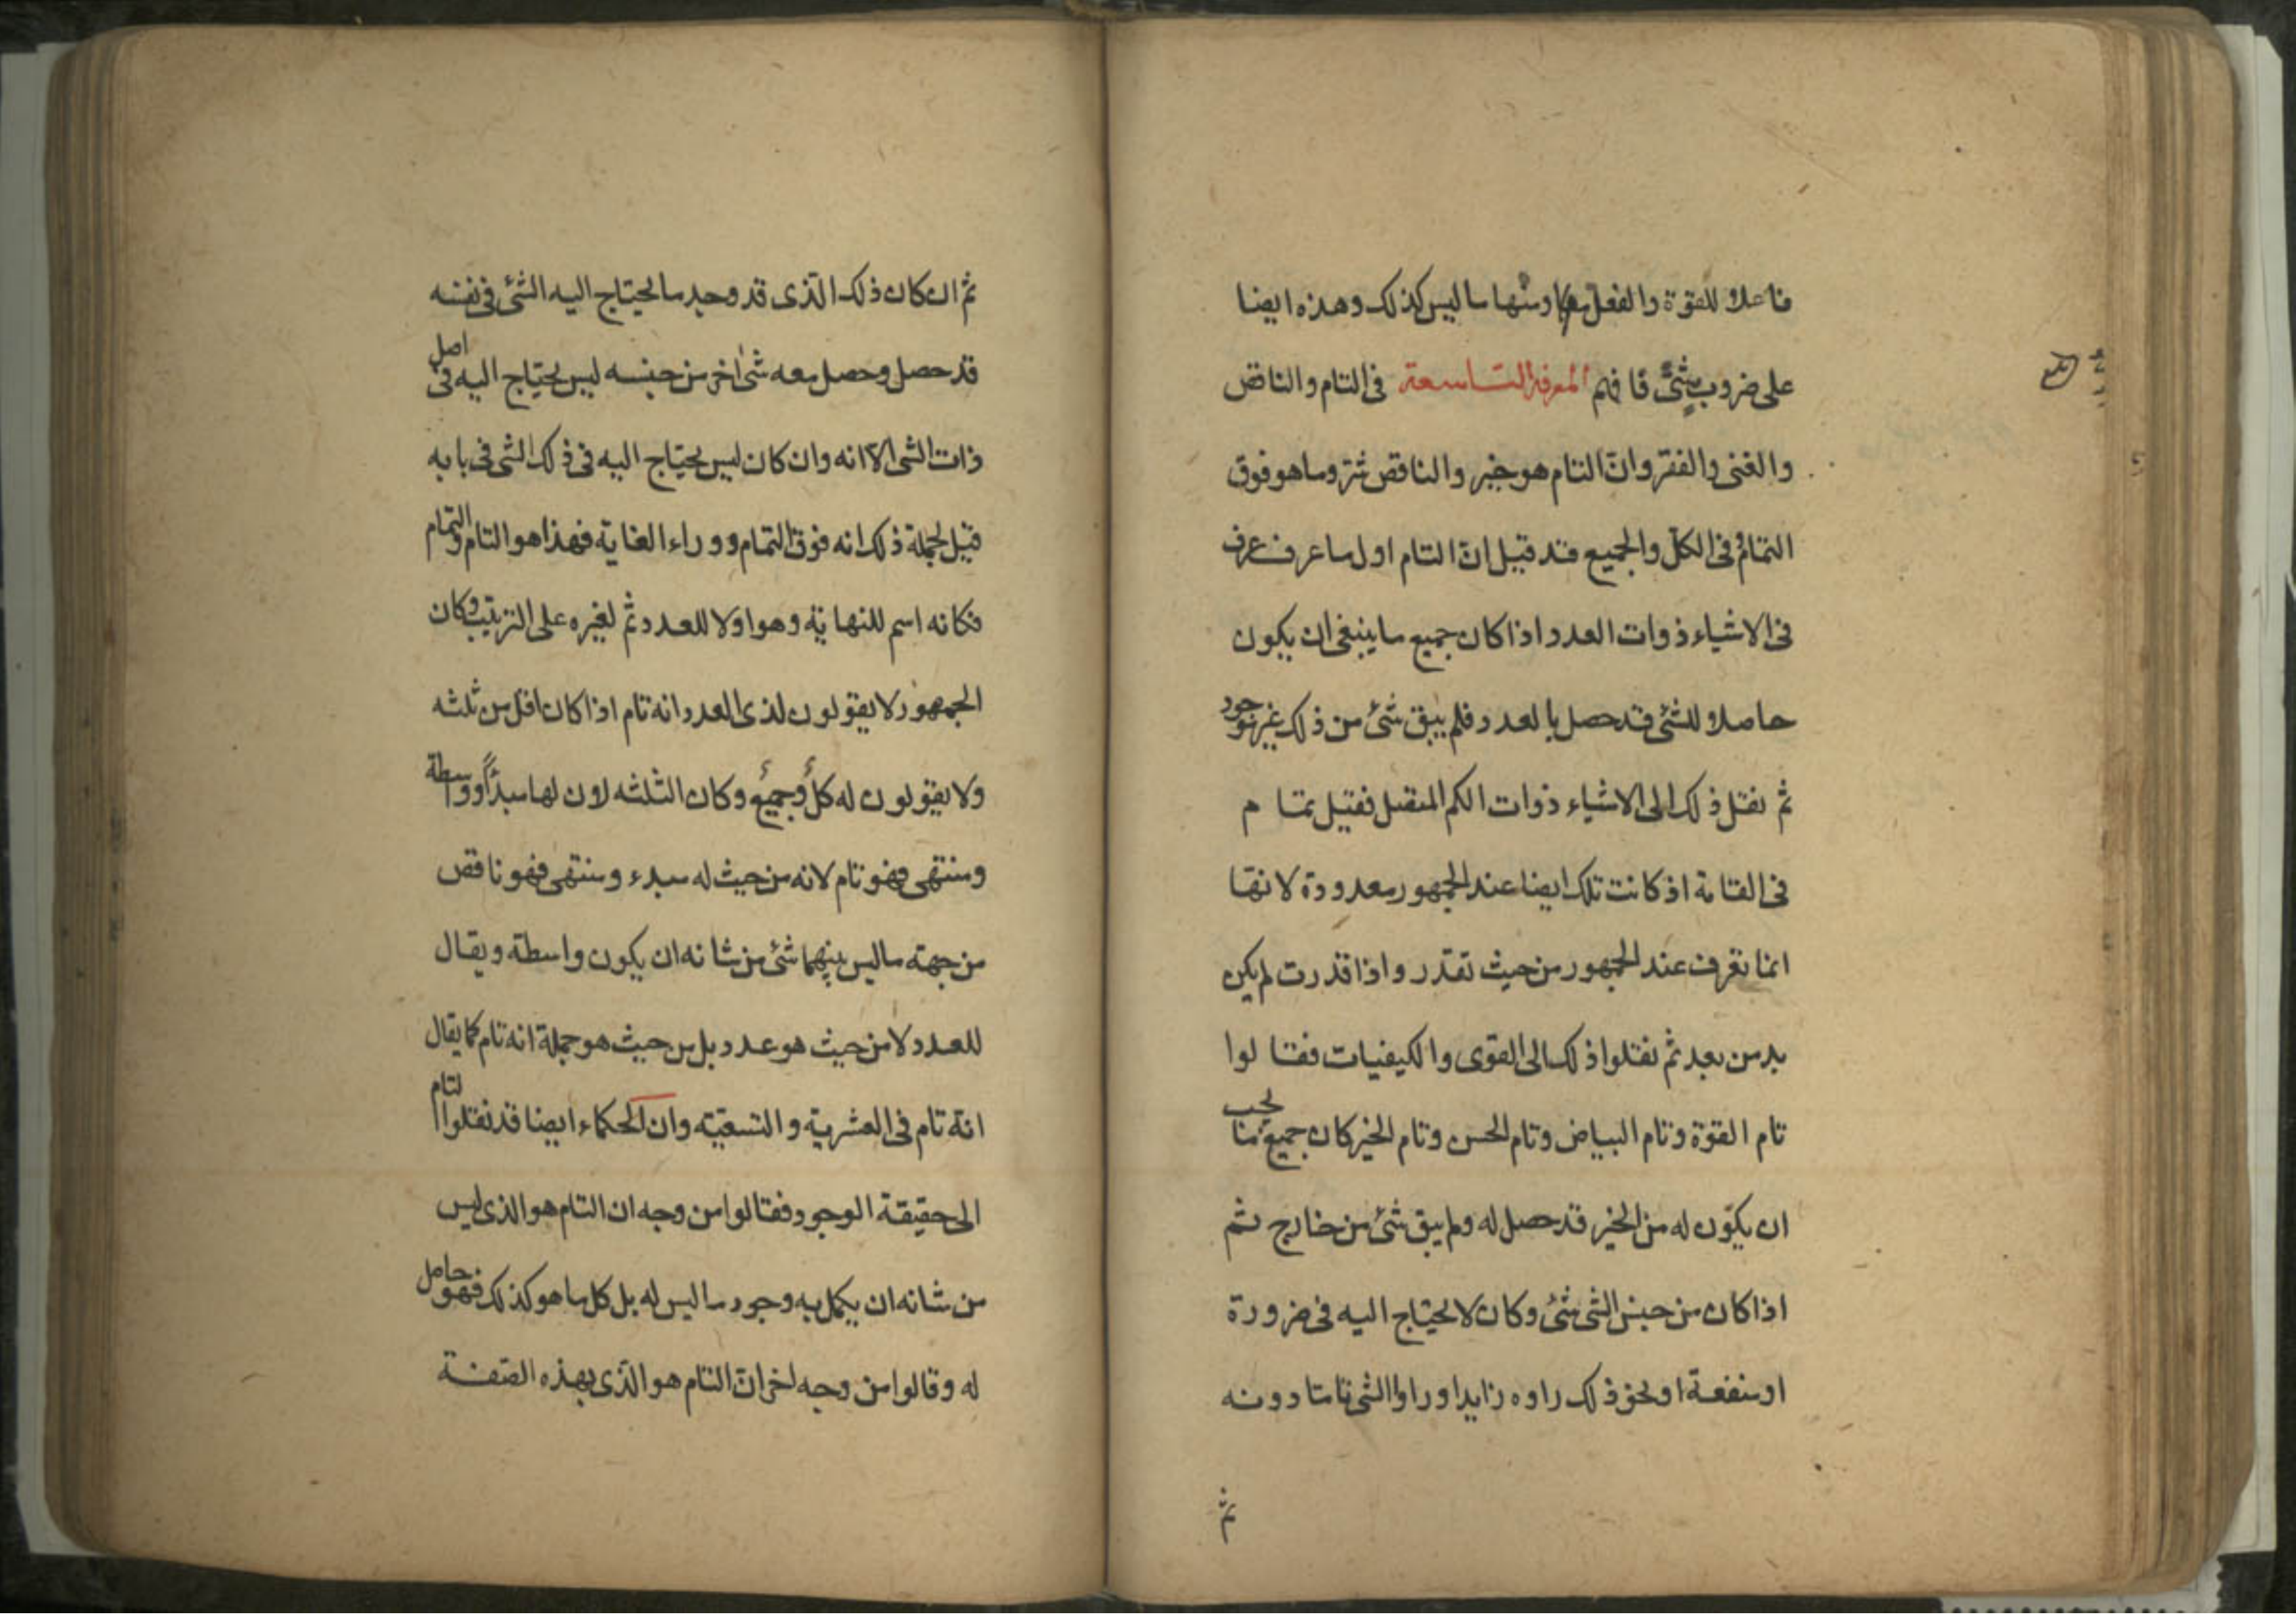 فاعلا للقوة والفعل معا ومنها ما ليس كذلك وهذه ايضا
على ضروب شتى فافهم المعرفة التاسعة فى التام والناقص
والغنى والفقر وانّ التام هو خير والناقص شر وما هو فوق
التمام فى الكلّ والجميع فقد قيل انّ التام اول ما عرف عرف
فى الاشياء ذوات العدد اذا كان جميع ما ينبغى ان يكون
حاصلا للشئ قد حصل بالعدد فلم يبق شئ من ذلك غير موجود
ثم نقل ذلك الى الاشياء ذوات الكم المتصل فقيل تمام
فى القامة اذ كانت تلك ايضا عند الجمهور معدودة لانها
انما تعرف عند الجمهور من حيث تقدر واذا قدرت لم يكن
بد من بعد ثم نقلوا ذلك الى القوى والكيفيات فقالوا
تام القوة وتام البياض وتام الحسن وتام الخير كان جميع ما يجب
ان يكون له من الخير قد حصل له ولم يبق شئ من خارج ثم
اذا كان من جنس الشى شئ وكان لا يحتاج اليه فى ضرورة
او منفعة او نحو ذلك راوه زايدا وراوا الشى تاما دونه
ثم
ثم ان كان ذلك الّذى قد وجد ما يحتاج اليه الشئ فى نفسه
قد حصل وحصل معه شئ اخر من جنسه ليس يحتاج اليه فى اصل
ذات الشى الا انه وان كان ليس يحتاج اليه فى ذلك الشى فى بابه
قيل لجملة ذلك انه فوق التمام ووراء الغاية فهذا هو التام والتمام
فكانه اسم للنهاية وهو اولا للعدد ثم لغيره على الترتيب وكان
الجمهور لا يقولون لذى العدد انه تام اذا كان اقل من ثلثه
ولا يقولون له كل وجميع وكان الثلثه لان لها مبدأ وواسطة
ومنتهى فهو تام لانه من حيث له مبدء ومنتهى فهو ناقص
من جهة ما ليس بينهما شئ من شانه ان يكون واسطة ويقال
للعدد لا من حيث هو عدد بل من حيث هو جملة انه تام كما يقال
انه تام فى العشرية والتسعيّة وان الحكماء ايضا قد نقلوا التام
الى حقيقة الوجود فقالوا من وجه ان التام هو الذى ليس
من شانه ان يكمل به وجود ما ليس له بل كل ما هو كذلك فهو حاصل
له وقالوا من وجه اخر انّ التام هو الّذى بهذه الصفة